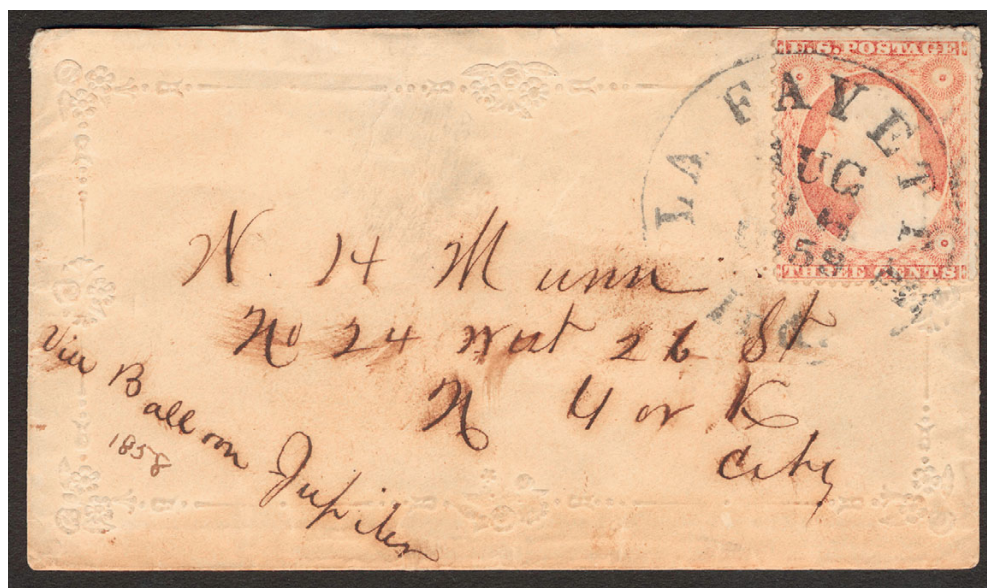 U.S. POSTAGE
THREE CENTS
LA FAYETTE
AUG
1859
Ind.
N. H Munn
No 24 West 26 St
N York
City
Via Balloon Jupiter
1858